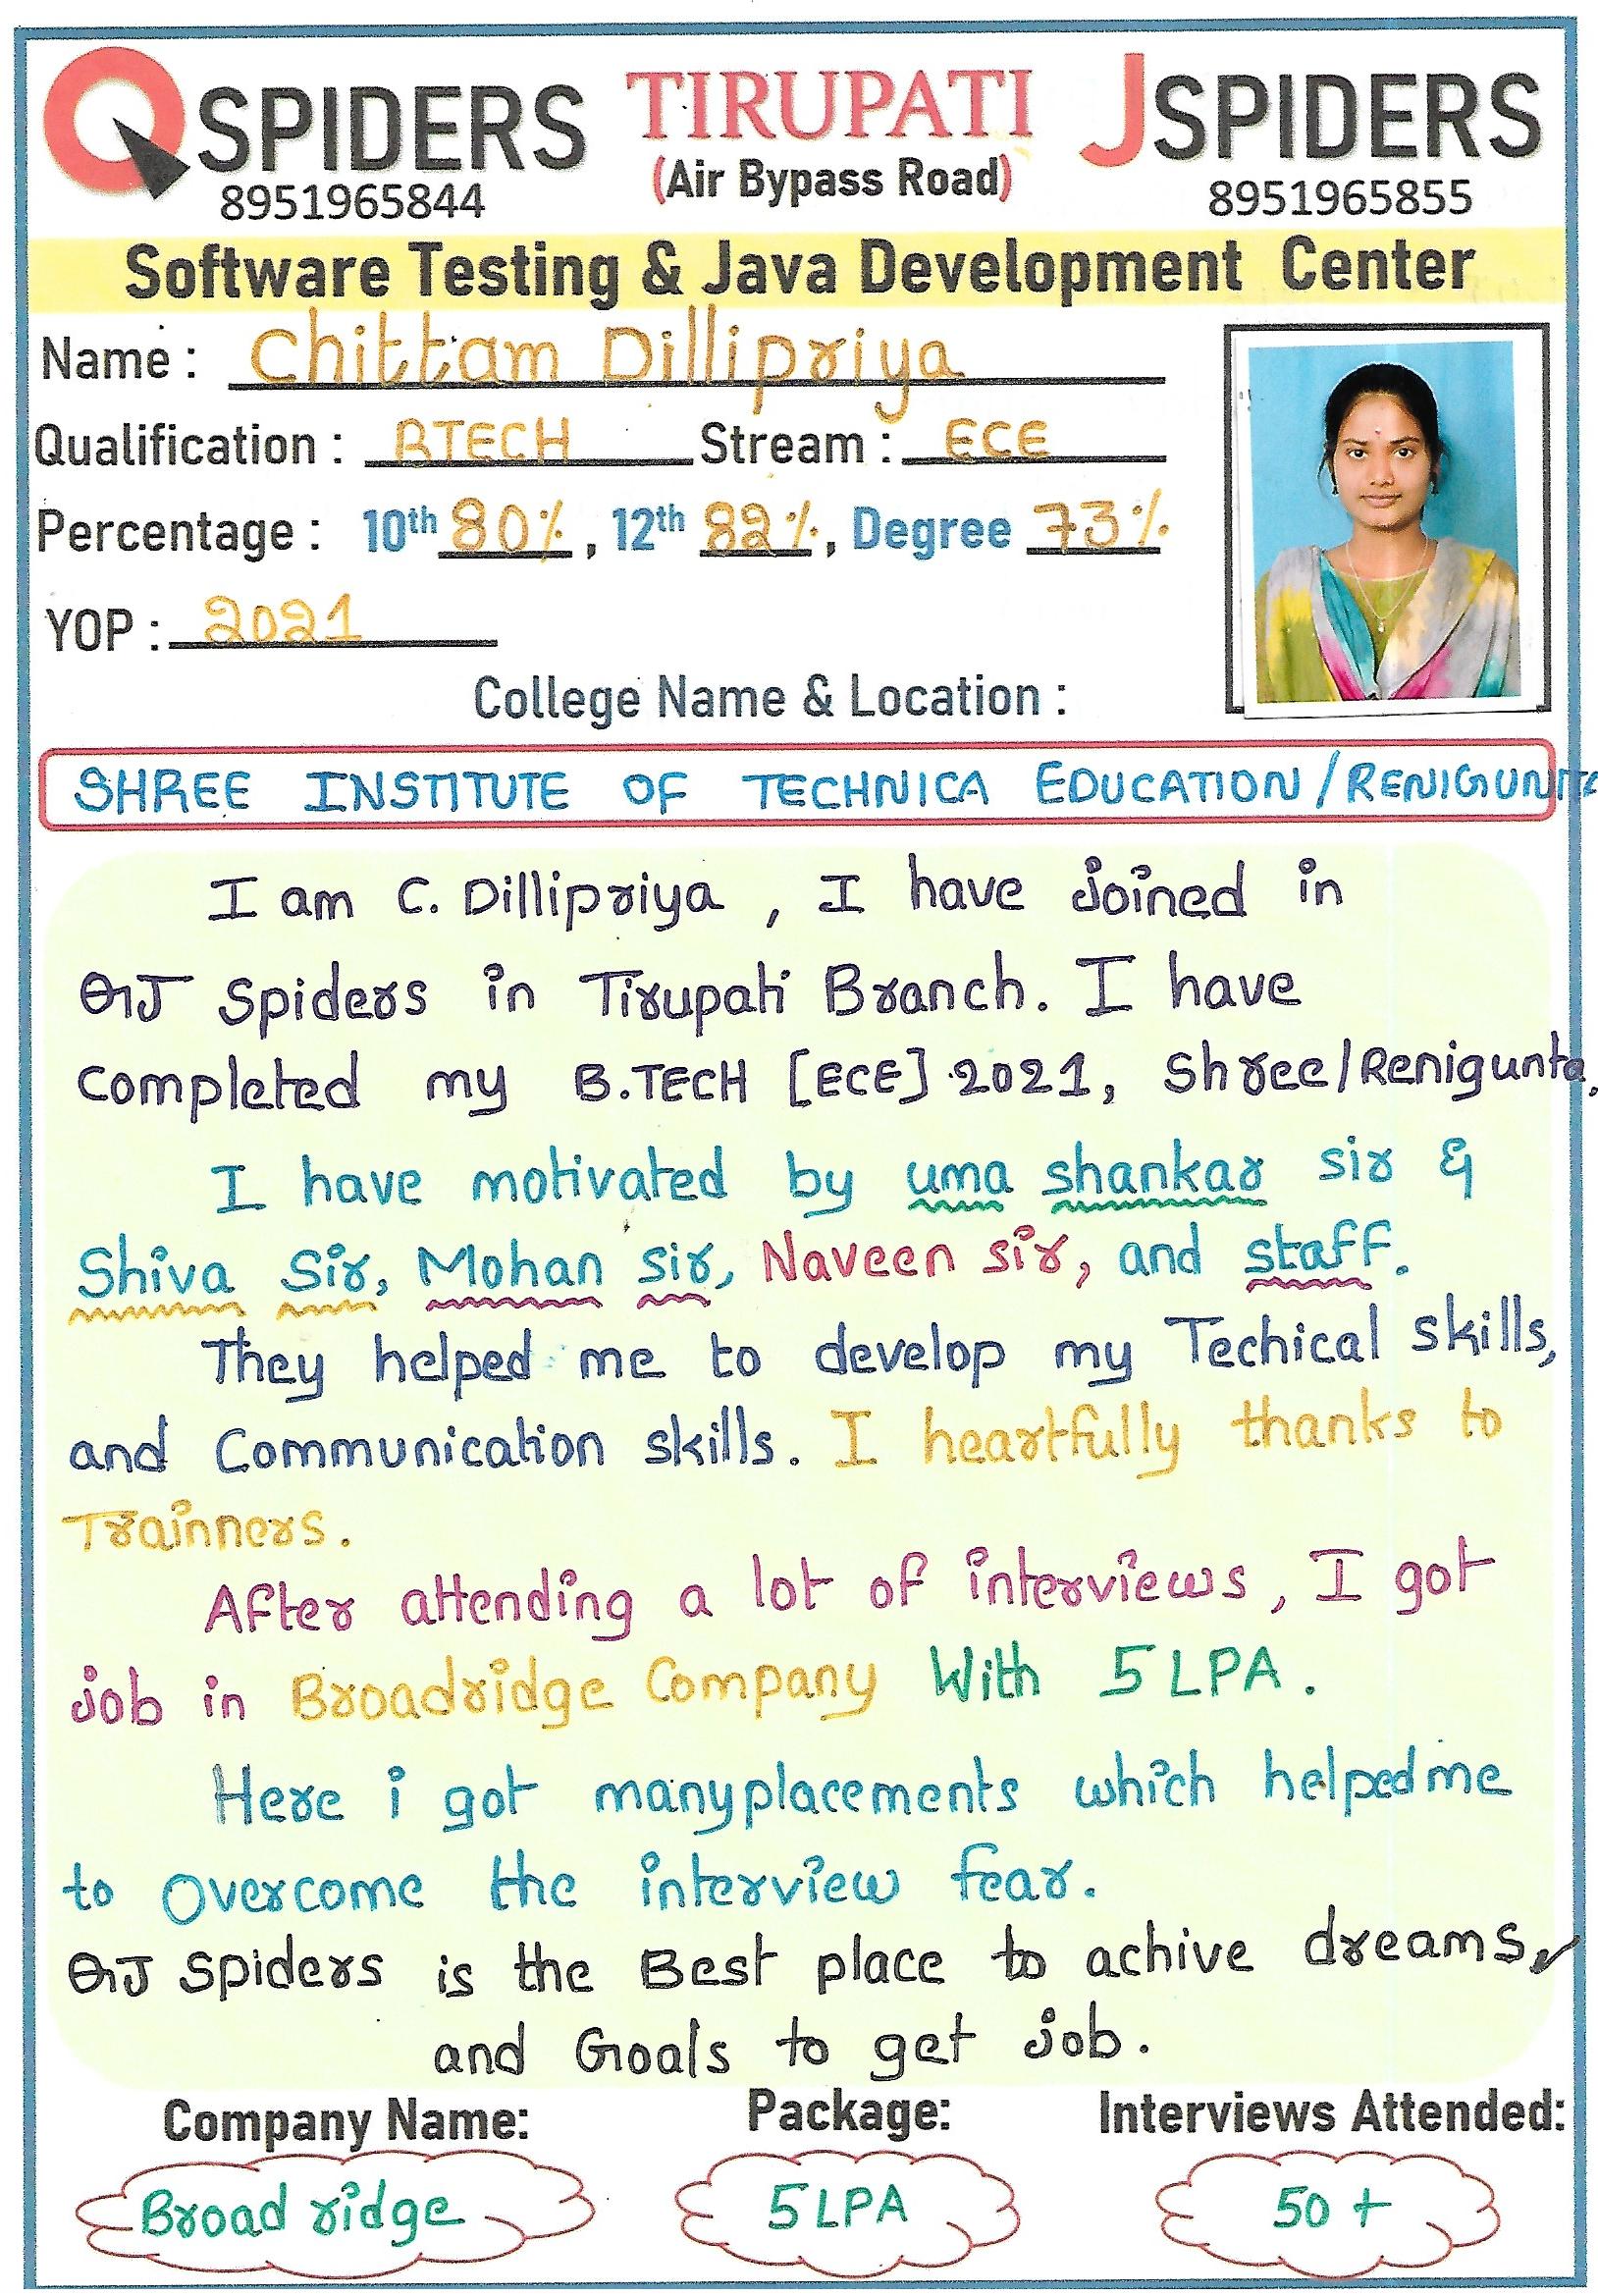 QSPIDERS TIRUPATI JSPIDERS
8951965844 (Air Bypass Road) 8951965855
Software Testing & Java Development Center
Name : Chittam Dillipriya
Qualification : BTECH Stream : ECE
Percentage : 10th 80%, 12th 82%, Degree 73%
YOP : 2021
College Name & Location :
SHREE INSTITUTE OF TECHNICA EDUCATION/RENIGUNTA
I am C. Dillipriya, I have joined in
QJ Spiders in Tirupati Branch. I have
completed my B.TECH [ECE] 2021, Shree/Renigunta.
I have motivated by uma shankar sir &
Shiva Sir, Mohan sir, Naveen sir, and staff.
They helped me to develop my Techical skills,
and Communication skills. I heartfully thanks to
Trainners.
After attending a lot of interviews, I got
job in Broadridge Company With 5 LPA.
Here i got manyplacements which helped me
to Overcome the interview fear.
QJ Spiders is the Best place to achive dreams,
and Goals to get job.
Company Name: Package: Interviews Attended:
Broad ridge 5 LPA 50 +